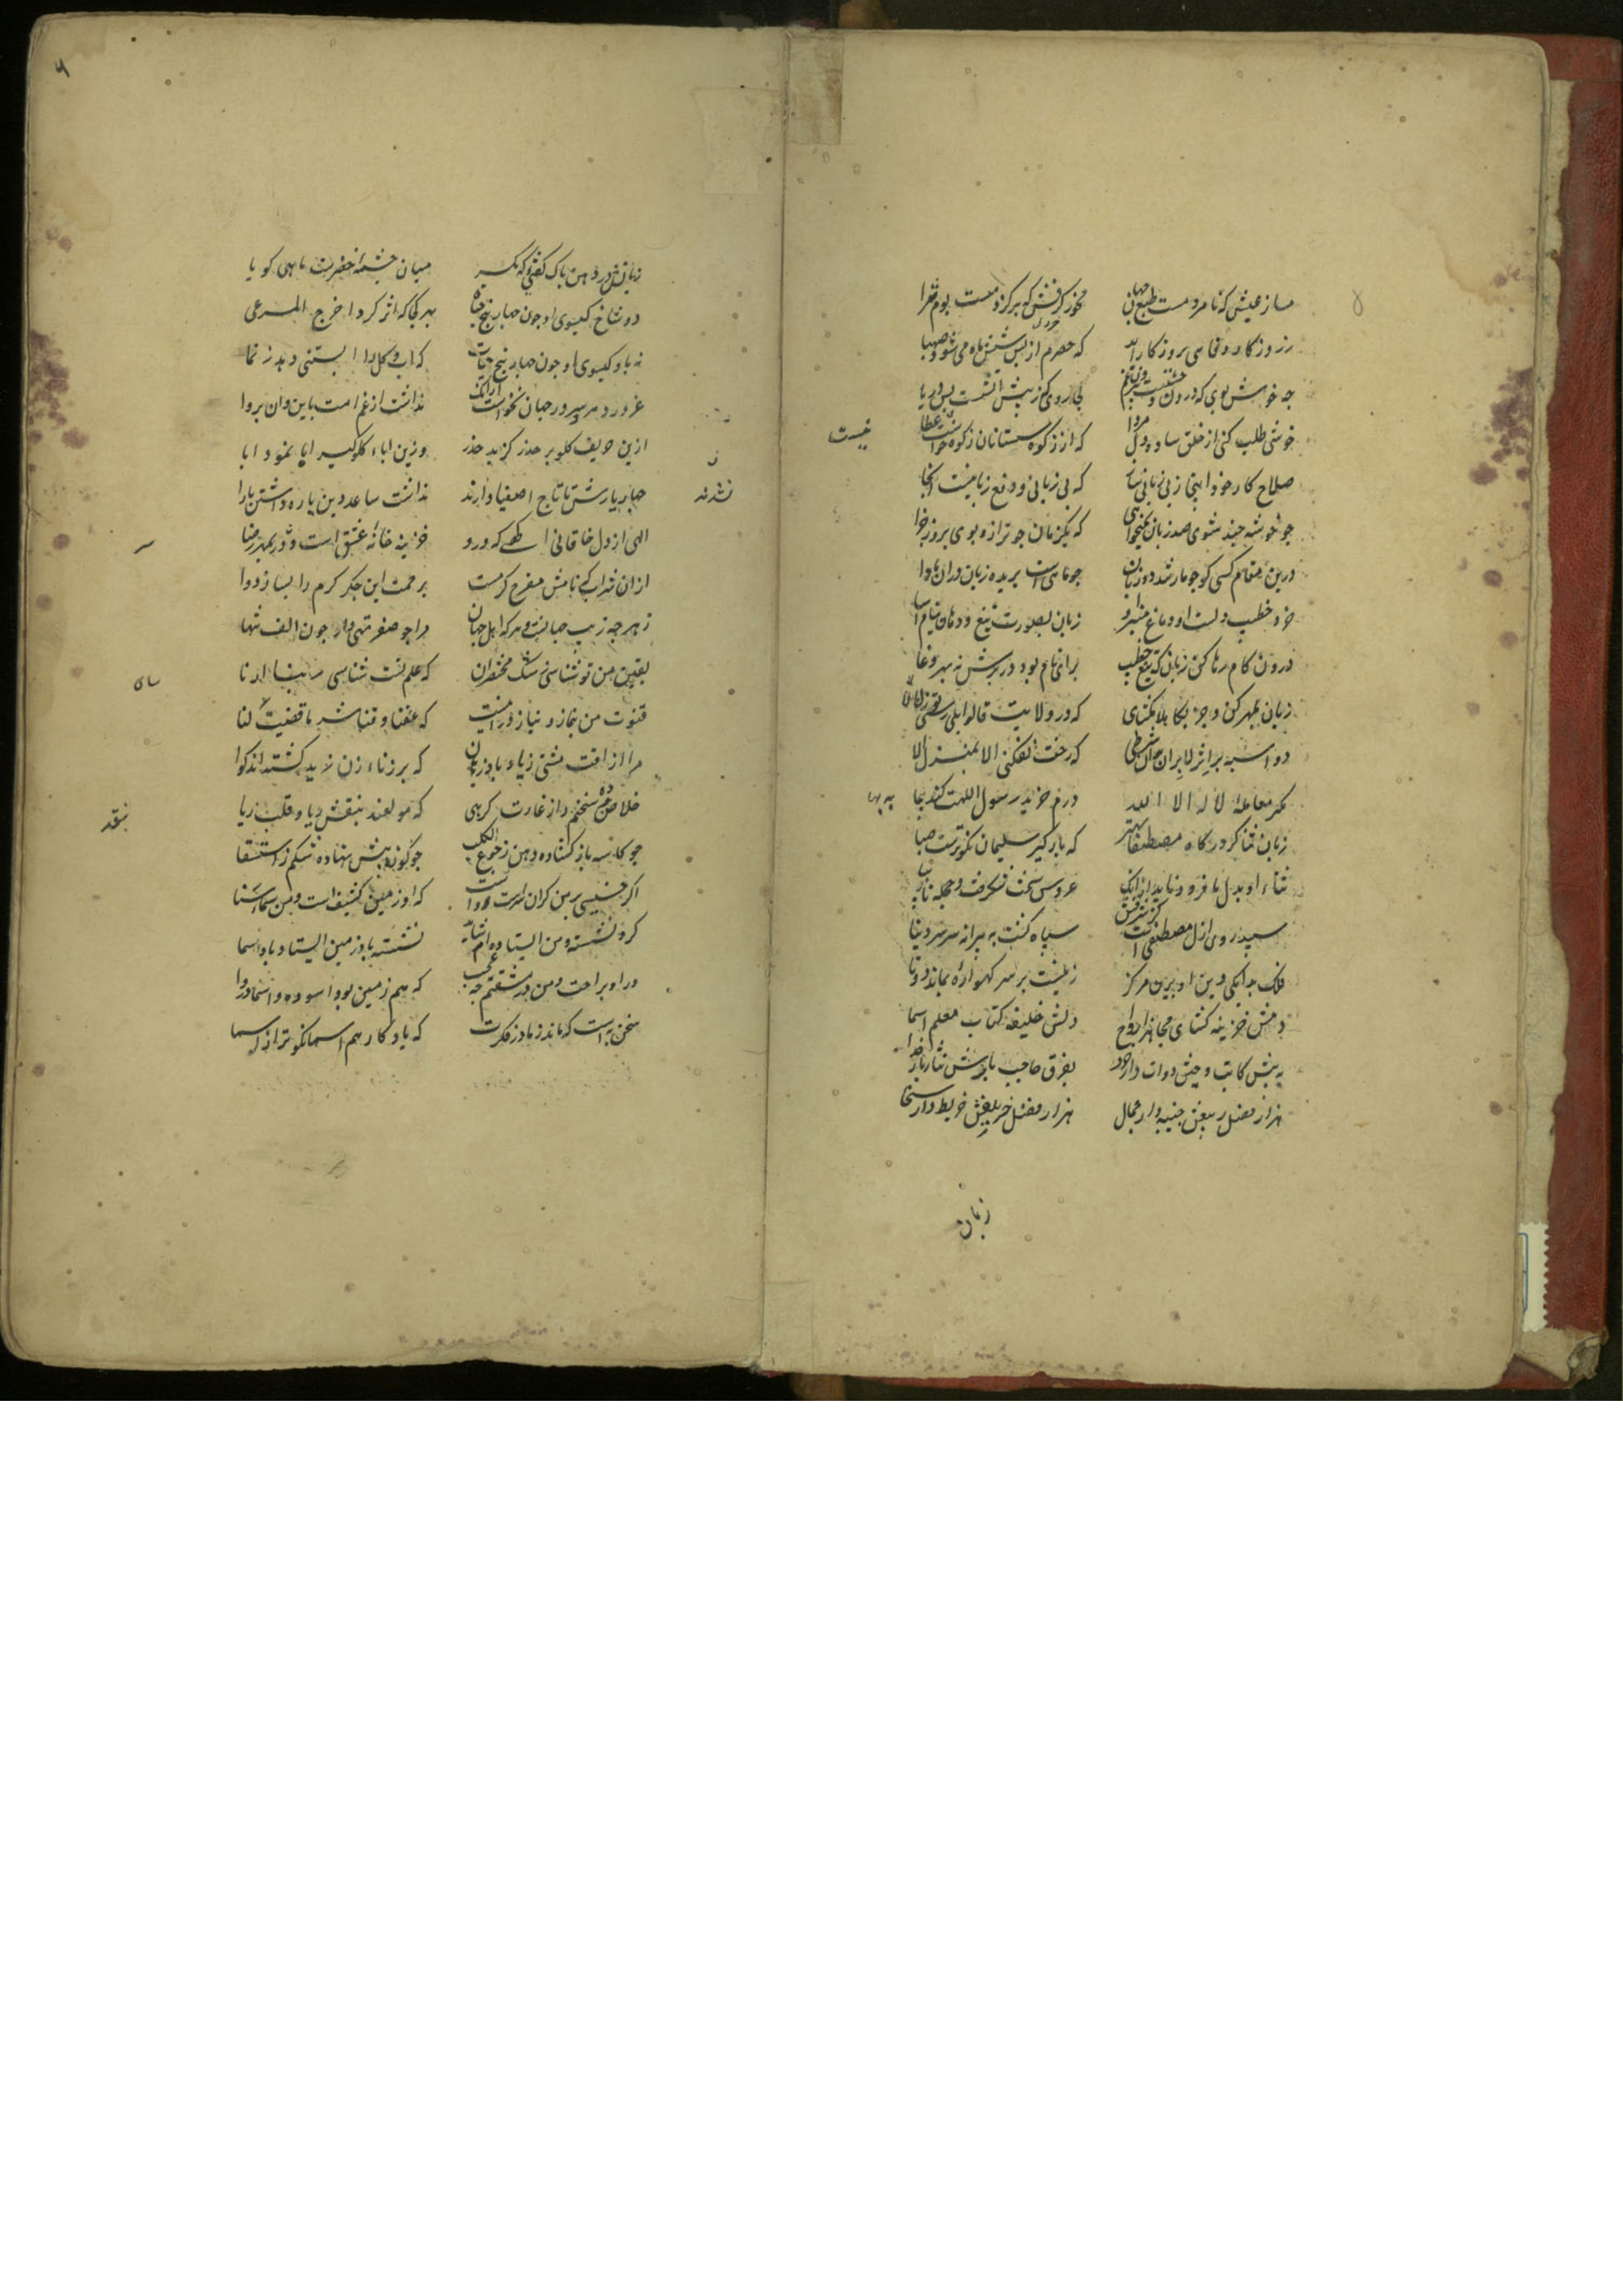 مساز عیش که نامردمست طبع جهان مخور کرفس که پر کژدمست بوم سرا
ز روزکار وفا هم بروزکار آید که حصرم از پس شش ماه می شود صهبا
چه خوش بوی که درون وحشتست و بیرون غم کجا روی که ز پیش آتشست و پس دریا
خوشی طلب کنی از خلق ساده دل مردا که از زکوة ستانان زکوة خواست عطا
نیست
صلاح کار خود اینجا ز بی زبانی ساز که بی زبانی دفع زبانیست آنجا
چو خوشه چند شوی صد زبان نمیخواهی که یکزمان چو ترازو بوی بروز جزا
درین مقام کسی کو چو مار شد دو زبان چو ماهی است بریده زبان دران ماوا
خرد خطیب دلست و دماغ منبر او زبان بصورت تیغ و دهان نیام آسا
درون کام رها کن زبان که تیغ خطیب برای نام بود در برش نه بهر وغا
زبان بمهر کن و جز بکاه لا مکشای که در ولایت قالوا بلی رسی تو ز لا
دو اسبه بر اثر لا بران که رخت نفکنی الا بمنزل الا
مکر معامله لا اله الا الله درم خرید رسول اللهت کند بها
زبان ثناکر درکاه مصطفی بهتر که بارکیر سلیمان نکوترست صبا
ثناء او بدل ما فرو نیاید از انک عروس سخت شکرفست و حجله نازیبا
سپید روی ازل مصطفی است کز شرفش سیاه کشت به پیرانه سر سر دنیا
فلک بدایکی دین او برین مرکز زنیست بر سر کهواره بمانده دوتا
دمش خزینه کشای مجاهز ارواح دلش خلیفه کتاب معلم اسما
به پیش کاتب وحیش دوات دار خرد بفرق حاجب بارش نثار بار خدا
هزار فصل ربیعش جنیبه دار جمال هزار فضل ربیعش خریطه دار سخا
زبان
زبانش در دهن پاک کفتی که مکر میان چشمه خضرست ماهی کویا
دو شاخ کیسوی او چون چهار بیخ حیات بهر کجا که اثر کرد اخرج المرعی
نه باد کیسوی او چون بهار بیخ حیات که آب و کل را آبستنی دهد ز نما
غرور دهر و سرور جهان نخواست از انک نداشت از غم امت باین و آن پروا
ازین حریف کلوبر حذر کزید حذر وزین اباء کلوکیر ابا نمود ابا
چهار یارش تا تاج اصفیا نداشت ساعد دین یاره داشتن یارا
نشدند
الهی از دل خاقانی آکهی که درو خزینه خانه عشق است و در بمهر رضا
ازان شراب که نامش مفرح کرمست برحمت این جکر کرم را بساز دوا
ز هر چه زیب جهانست و هر که اهل جهان مرا چو صفر تهی دار چون الف تنها
قنوت من بنماز و نیاز در اینست که عافنا و قنا شر ما قضیت لنا
مرا از آفت مشتی زیاد باز رهان که بر زناء زن زید کشته اند کوا
خلاص ده سخنم را ز غارت کرهی که مولعند بنقش ریا و قلب ریا
بنقد
چو کاسه باز کشاده دهن ز جوع الکلب چو کوزه پیش نهاده شکم ز استسقا
اکر خسیسی بر من کران سرست رواست که او زمین کثیف است و من سماء سنا
کر او نشسته و من ایستاده ام شاید نشسته باد زمین ایستاده باد سما
ور او براحت و من در مشقتم چه عجب که هم زمین بود آسوده و آسمان دروا
سخن به است که ماند ز مادر فکرت که یادکار هم اسما نکوتر از اسما